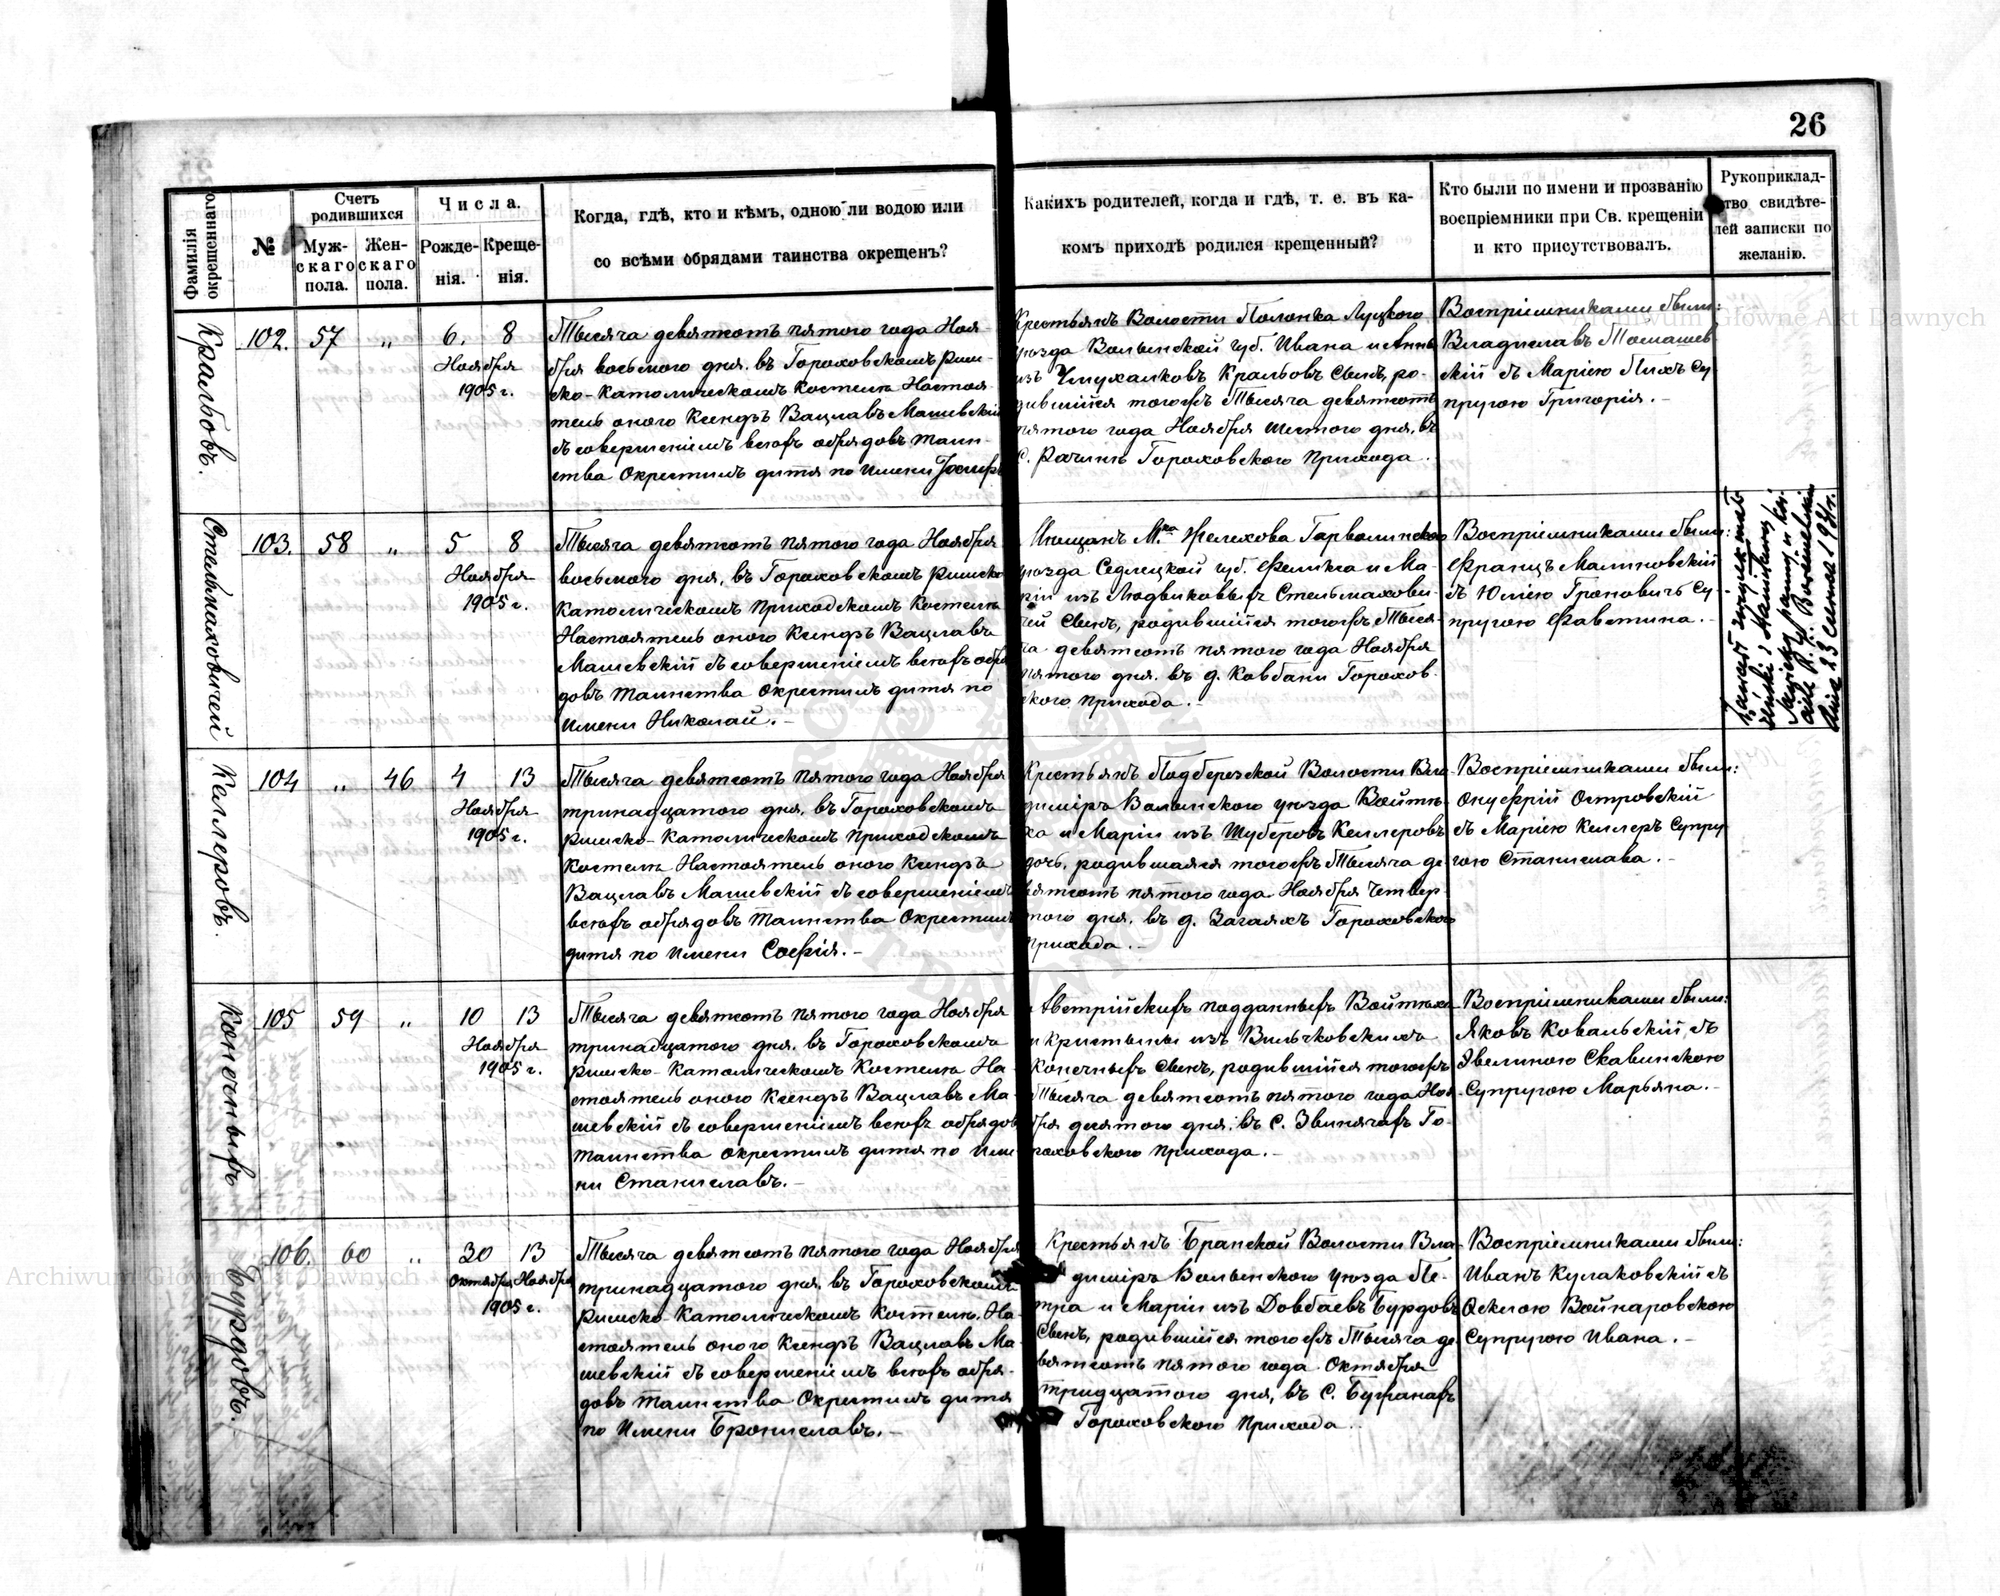 26
Фамилія окрещеннаго.
№
Счетъ родившихся
Муж-
скаго
пола.
Жен-
скаго
пола.
Числа.
Рожде-
нія.
Креще-
нія.
Когда, гдѣ, кто и кѣмъ, одною ли водою или
со всѣми обрядами таинства окрещенъ?
Какихъ родителей, когда и гдѣ, т. е. въ ка-
комъ приходѣ родился крещенный?
Кто были по имени и прозванію
воспріемники при Св. крещеніи
и кто присутствовалъ.
Рукоприклад-
тво свидѣте-
лей записки по
желанію.
Кральбовъ.
102. 57 „ 6. 8
Ноября
1905 г.
Тысяча девятьсотъ пятого года Ноя-
бря восьмого дня, въ Гороховскомъ Рим-
ско-Католическомъ Костелѣ Настоя-
тель оного Ксендзъ Вацлавъ Машевскій
съ совершеніемъ всѣхъ обрядовъ таин-
ства Окрестилъ дитя по имени Іосифъ
Крестьянъ Волости Полонка Луцкого
уѣзда Волынской губ. Ивана и Анны
изъ Кральбовъ Сынъ, ро-
дившійся тогожъ Тысяча девятьсотъ
пятого года Ноября шестого дня, въ
с. Рачинѣ Гороховского Прихода.
Воспріемниками были:
Владиславъ Томашев
скій съ Маріею Пихъ Су
пругою Григорія.-
Стельмаховичей
103. 58 „ 5 8
Ноября
1905 г.
Тысяча девятьсотъ пятого года Ноября
восьмого дня, въ Гороховскомъ Римско
Католическомъ Приходскомъ Костелѣ
Настоятель оного Ксендзъ Вацлавъ
Машевскій съ совершеніемъ всѣхъ обря
довъ таинства окрестилъ дитя по
имени Николай.-
Мѣщанъ М.ка Желехова Гарволинского
уѣзда Седлецкой губ. Феликса и Ма-
ріи изъ Людвиковыхъ Стельмахови-
чей Сынъ, родившійся тогожъ Тыся-
ча девятьсотъ пятого года Ноября
пятого дня, въ д. Ковбани Горохов-
ского Прихода.-
Воспріемниками были:
Францъ Малиновскій
съ Юліею Грановичъ Су-
пругою Фавстина.-
Келлеровъ.
104 „ 46 4 13
Ноября
1905 г.
Тысяча девятьсотъ пятого года Ноября
тринадцатого дня, въ Гороховскомъ
Римско-Католическомъ Приходскомъ
Костелѣ Настоятель оного Ксендзъ
Вацлавъ Машевскій съ совершеніемъ
всѣхъ обрядовъ Таинства Окрестилъ
дитя по имени Софія.-
Крестьянъ Подберезской Волости Вла-
диміръ Волынского уѣзда Войтѣ-
ха и Маріи изъ Шуберовъ Келлеровъ
дочь, родившаяся тогожъ Тысяча де-
вятьсотъ пятого года Ноября Четвер-
того дня, въ д. Загаяхъ Гороховского
Прихода.-
Воспріемниками были:
Онуфрій Островскій
съ Маріею Келлеръ Супру
гою Станислава.-
Конечныхъ
105 59 „ 10 13
Ноября
1905 г.
Тысяча девятьсотъ пятого года Ноября
тринадцатого дня, въ Гороховскомъ
Римско-Католическомъ Костелѣ На-
стоятель оного Ксендзъ Вацлавъ Ма-
шевскій съ совершеніемъ всѣхъ обрядовъ
таинства окрестилъ дитя по име
ни Станиславъ.-
Австрійскихъ подданныхъ Войтѣха
и Кристины изъ Вильчковскихъ
Конечныхъ Сынъ, родившійся тогожъ
Тысяча девятьсотъ пятого года Ноя-
бря десятого дня, въ с. Звинячахъ Го-
роховского Прихода.-
Воспріемниками были:
Яковъ Ковальскій съ
Эвелиною Скавинскою
Супругою Марьяна.-
Бурдовъ.
106. 60 „ 30 13
Октября Ноября
1905 г.
Тысяча девятьсотъ пятого года Ноября
тринадцатого дня, въ Гороховскомъ
Римско-Католическомъ Костелѣ. На-
стоятель оного Ксендзъ Вацлавъ Ма-
шевскій съ совершеніемъ всѣхъ обря-
довъ таинства Окрестилъ дитя
по имени Брониславъ.-
Крестьянъ Бранской Волости Вла-
диміръ Волынского уѣзда Пе-
тра и Маріи изъ Довбаевъ Бурдовъ
Сынъ, родившійся тогожъ Тысяча де
вятьсотъ пятого года Октября
тридцатого дня, въ с. Бужанахъ
Гороховского Прихода.-
Воспріемниками были:
Иванъ Кулаковскій съ
Феклою Войнаровскою
Супругою Ивана.-
Archiwum Główne Akt Dawnych
Archiwum Główne Akt Dawnych